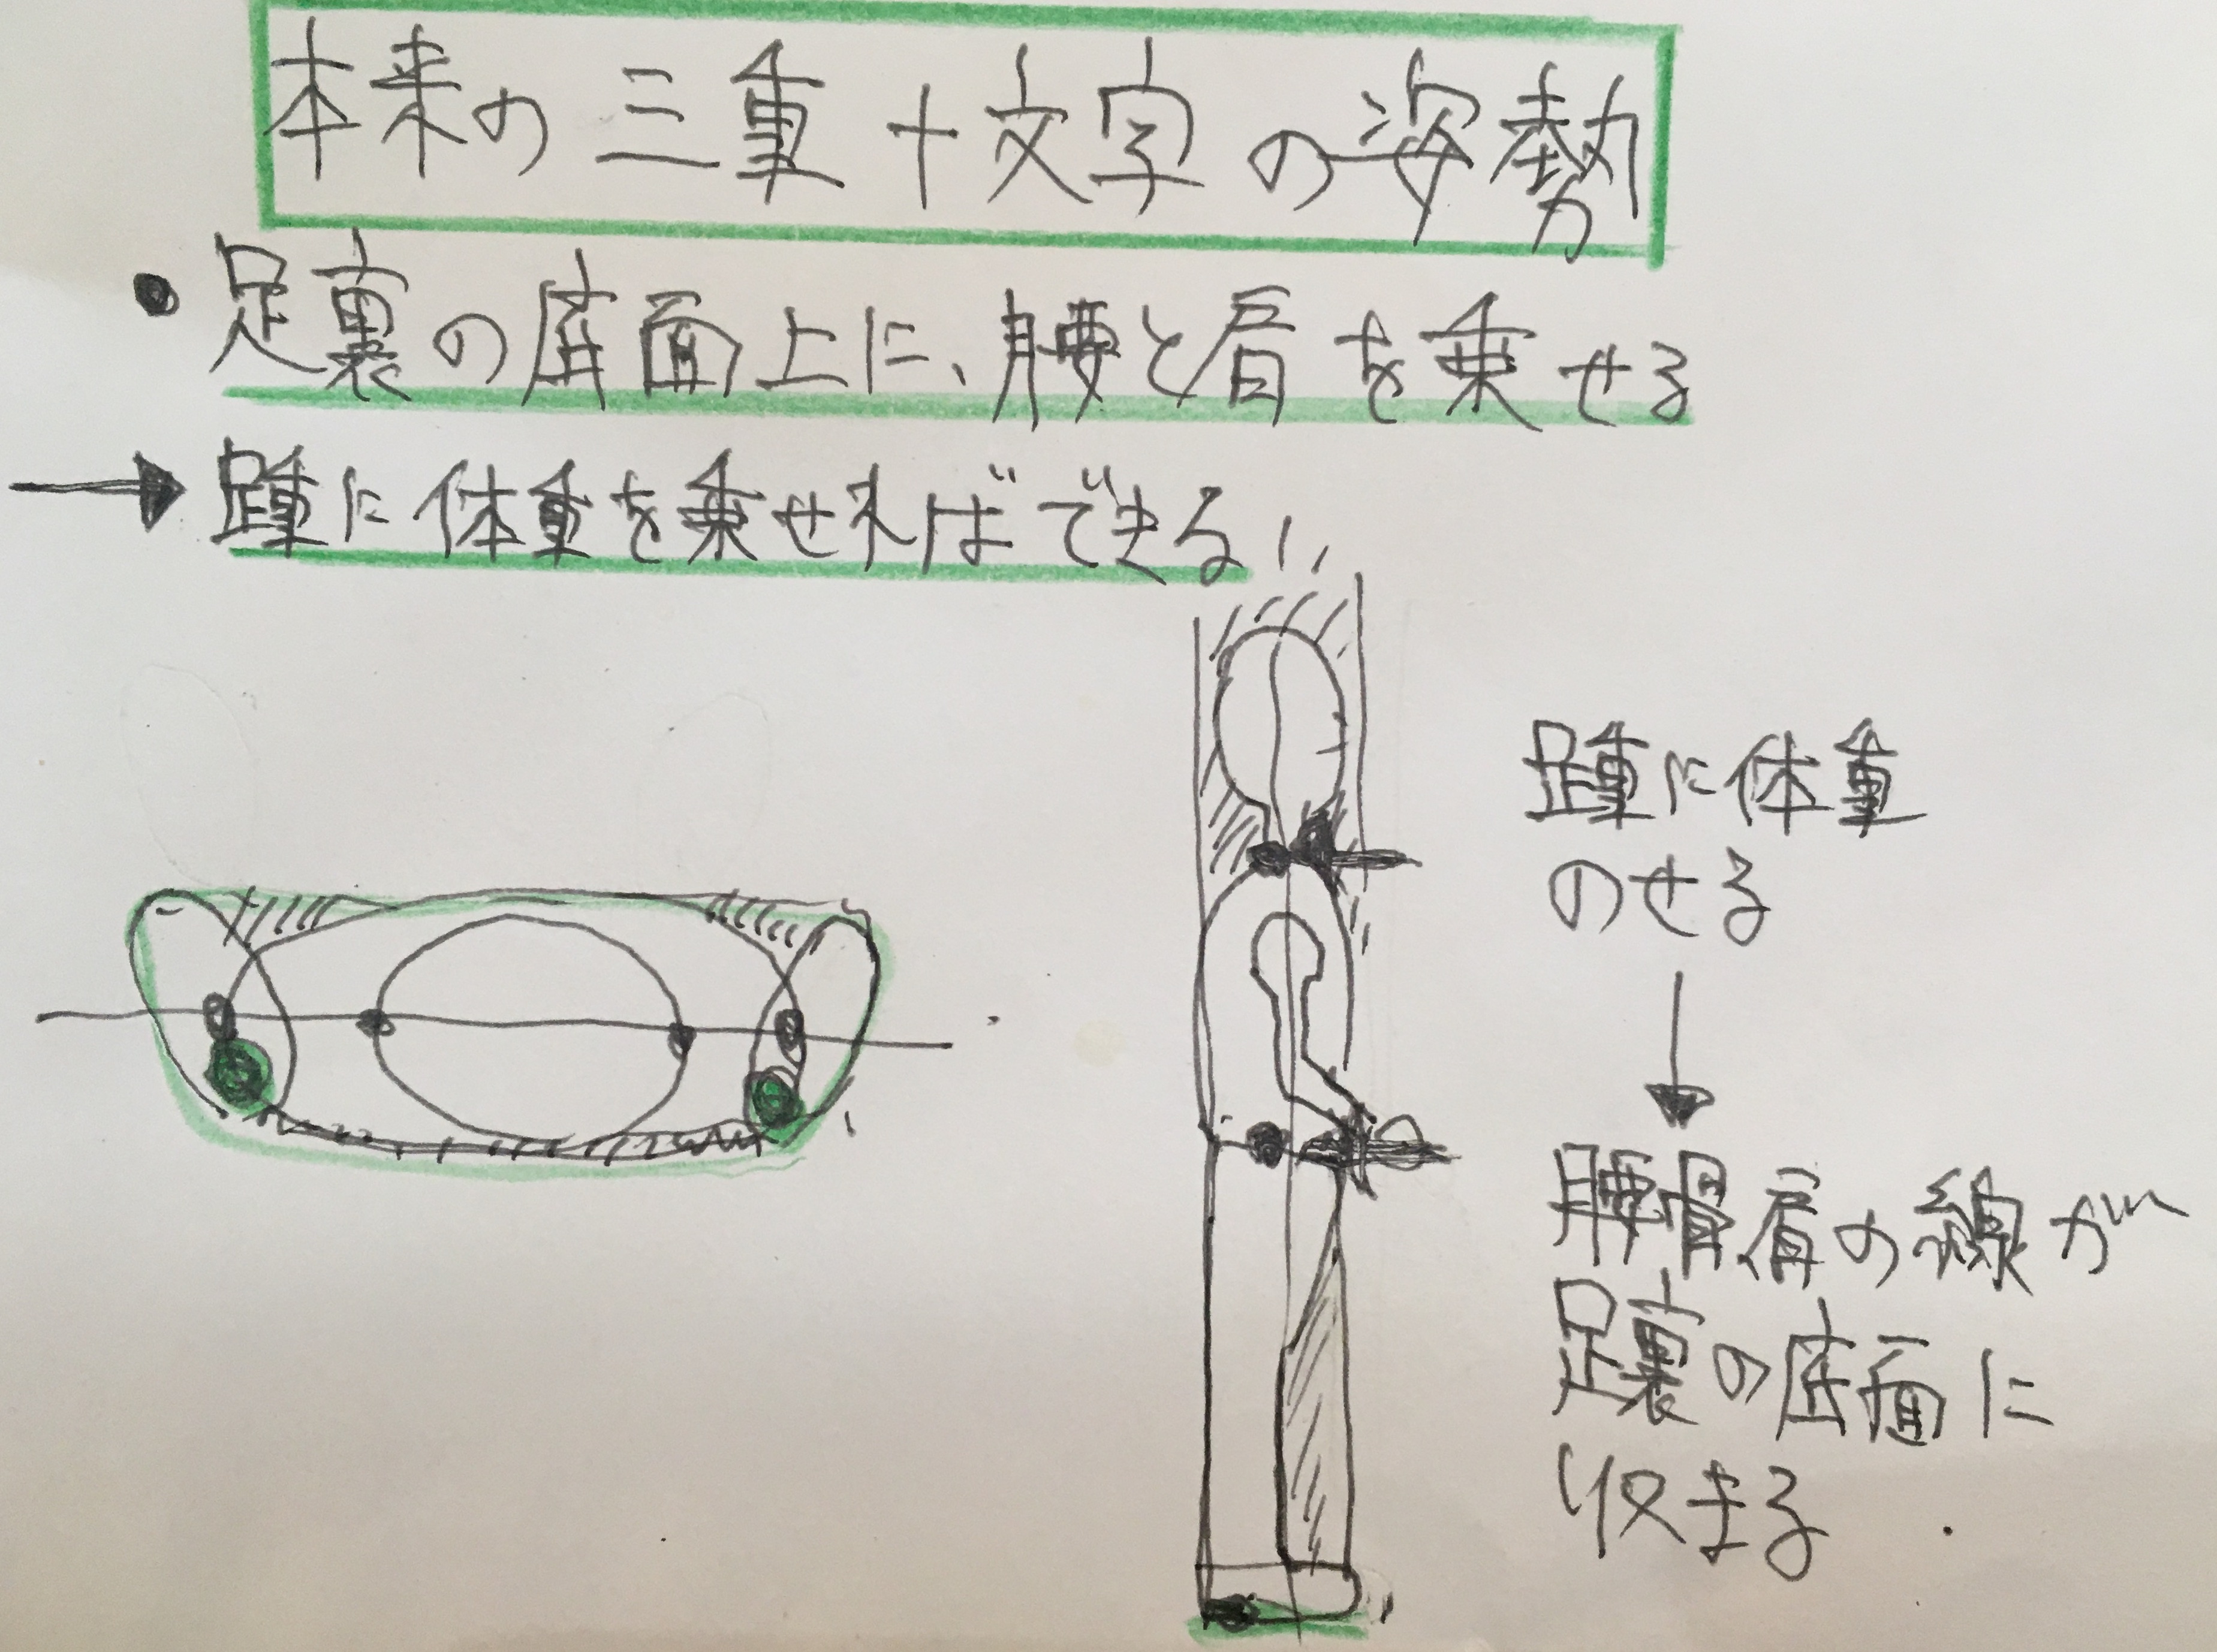 本来の三重十文字の姿勢
• 足裏の底面上に、腰と肩を乗せる
→ 踵に体重を乗せればできる
踵に体重
のせる
↓
腰骨肩の線が
足裏の底面に
収まる